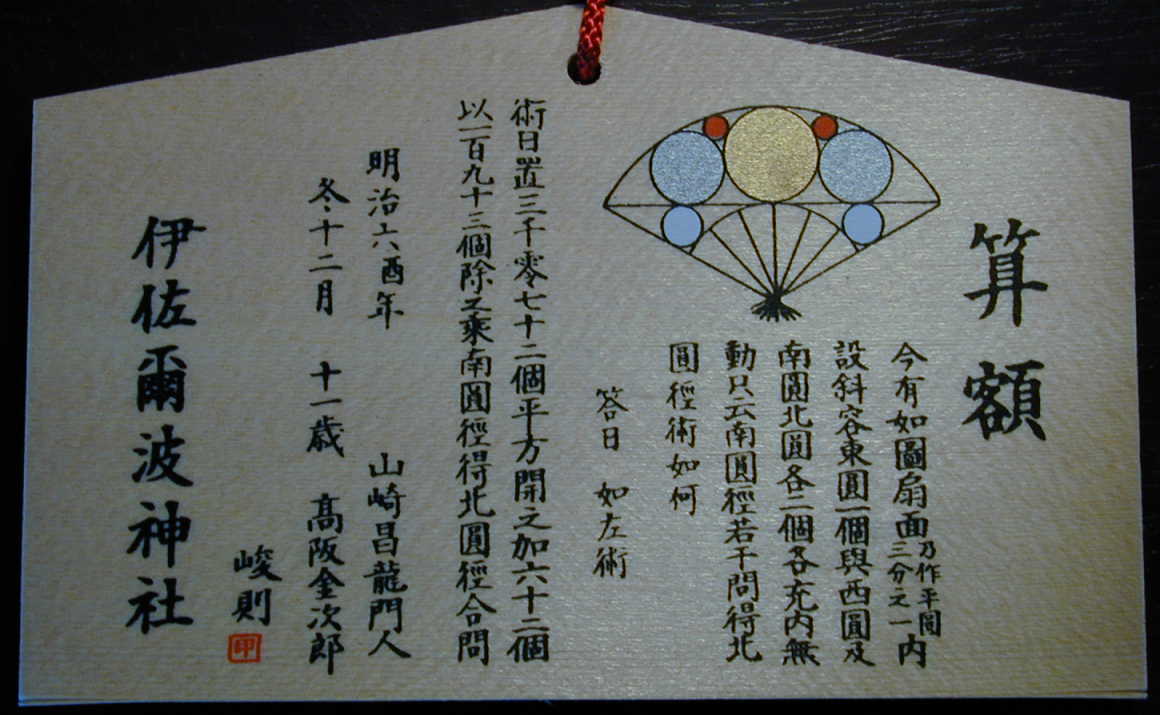 算額
今有如圖扇面乃作平圓三分之一内
設斜容東圓一個與西圓及
南圓北圓各二個各充内無
動只云南圓徑若干問得北
圓徑術如何
答曰 如左術
術曰置三千零七十二個平方開之加六十二個
以一百九十三個除之乗南圓徑得北圓徑合問
明治六酉年 山崎昌龍門人
冬十二月 十一歳 髙阪金次郎
峻則
印
伊佐爾波神社